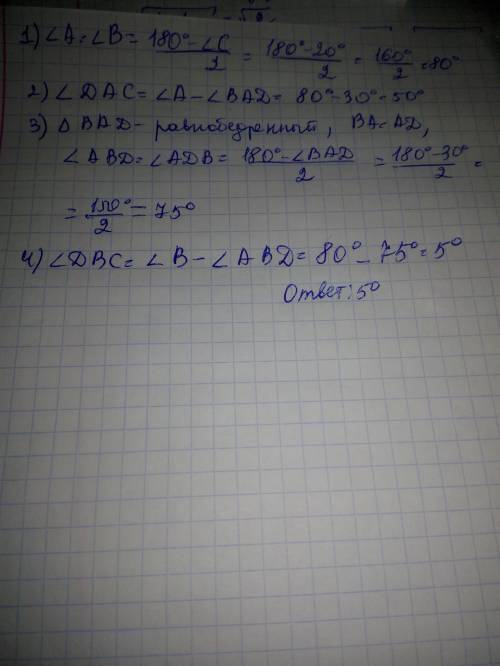 1) ∠A = ∠B = (180° - ∠C)/2 = (180° - 20°)/2 = 160°/2 = 80°
2) ∠DAC = ∠A - ∠BAD = 80° - 30° = 50°
3) Δ BAD - равнобедренный, BA = AD,
∠ABD = ∠ADB = (180° - ∠BAD)/2 = (180° - 30°)/2 =
= 150°/2 = 75°
4) ∠DBC = ∠B - ∠ABD = 80° - 75° = 5°
Ответ: 5°